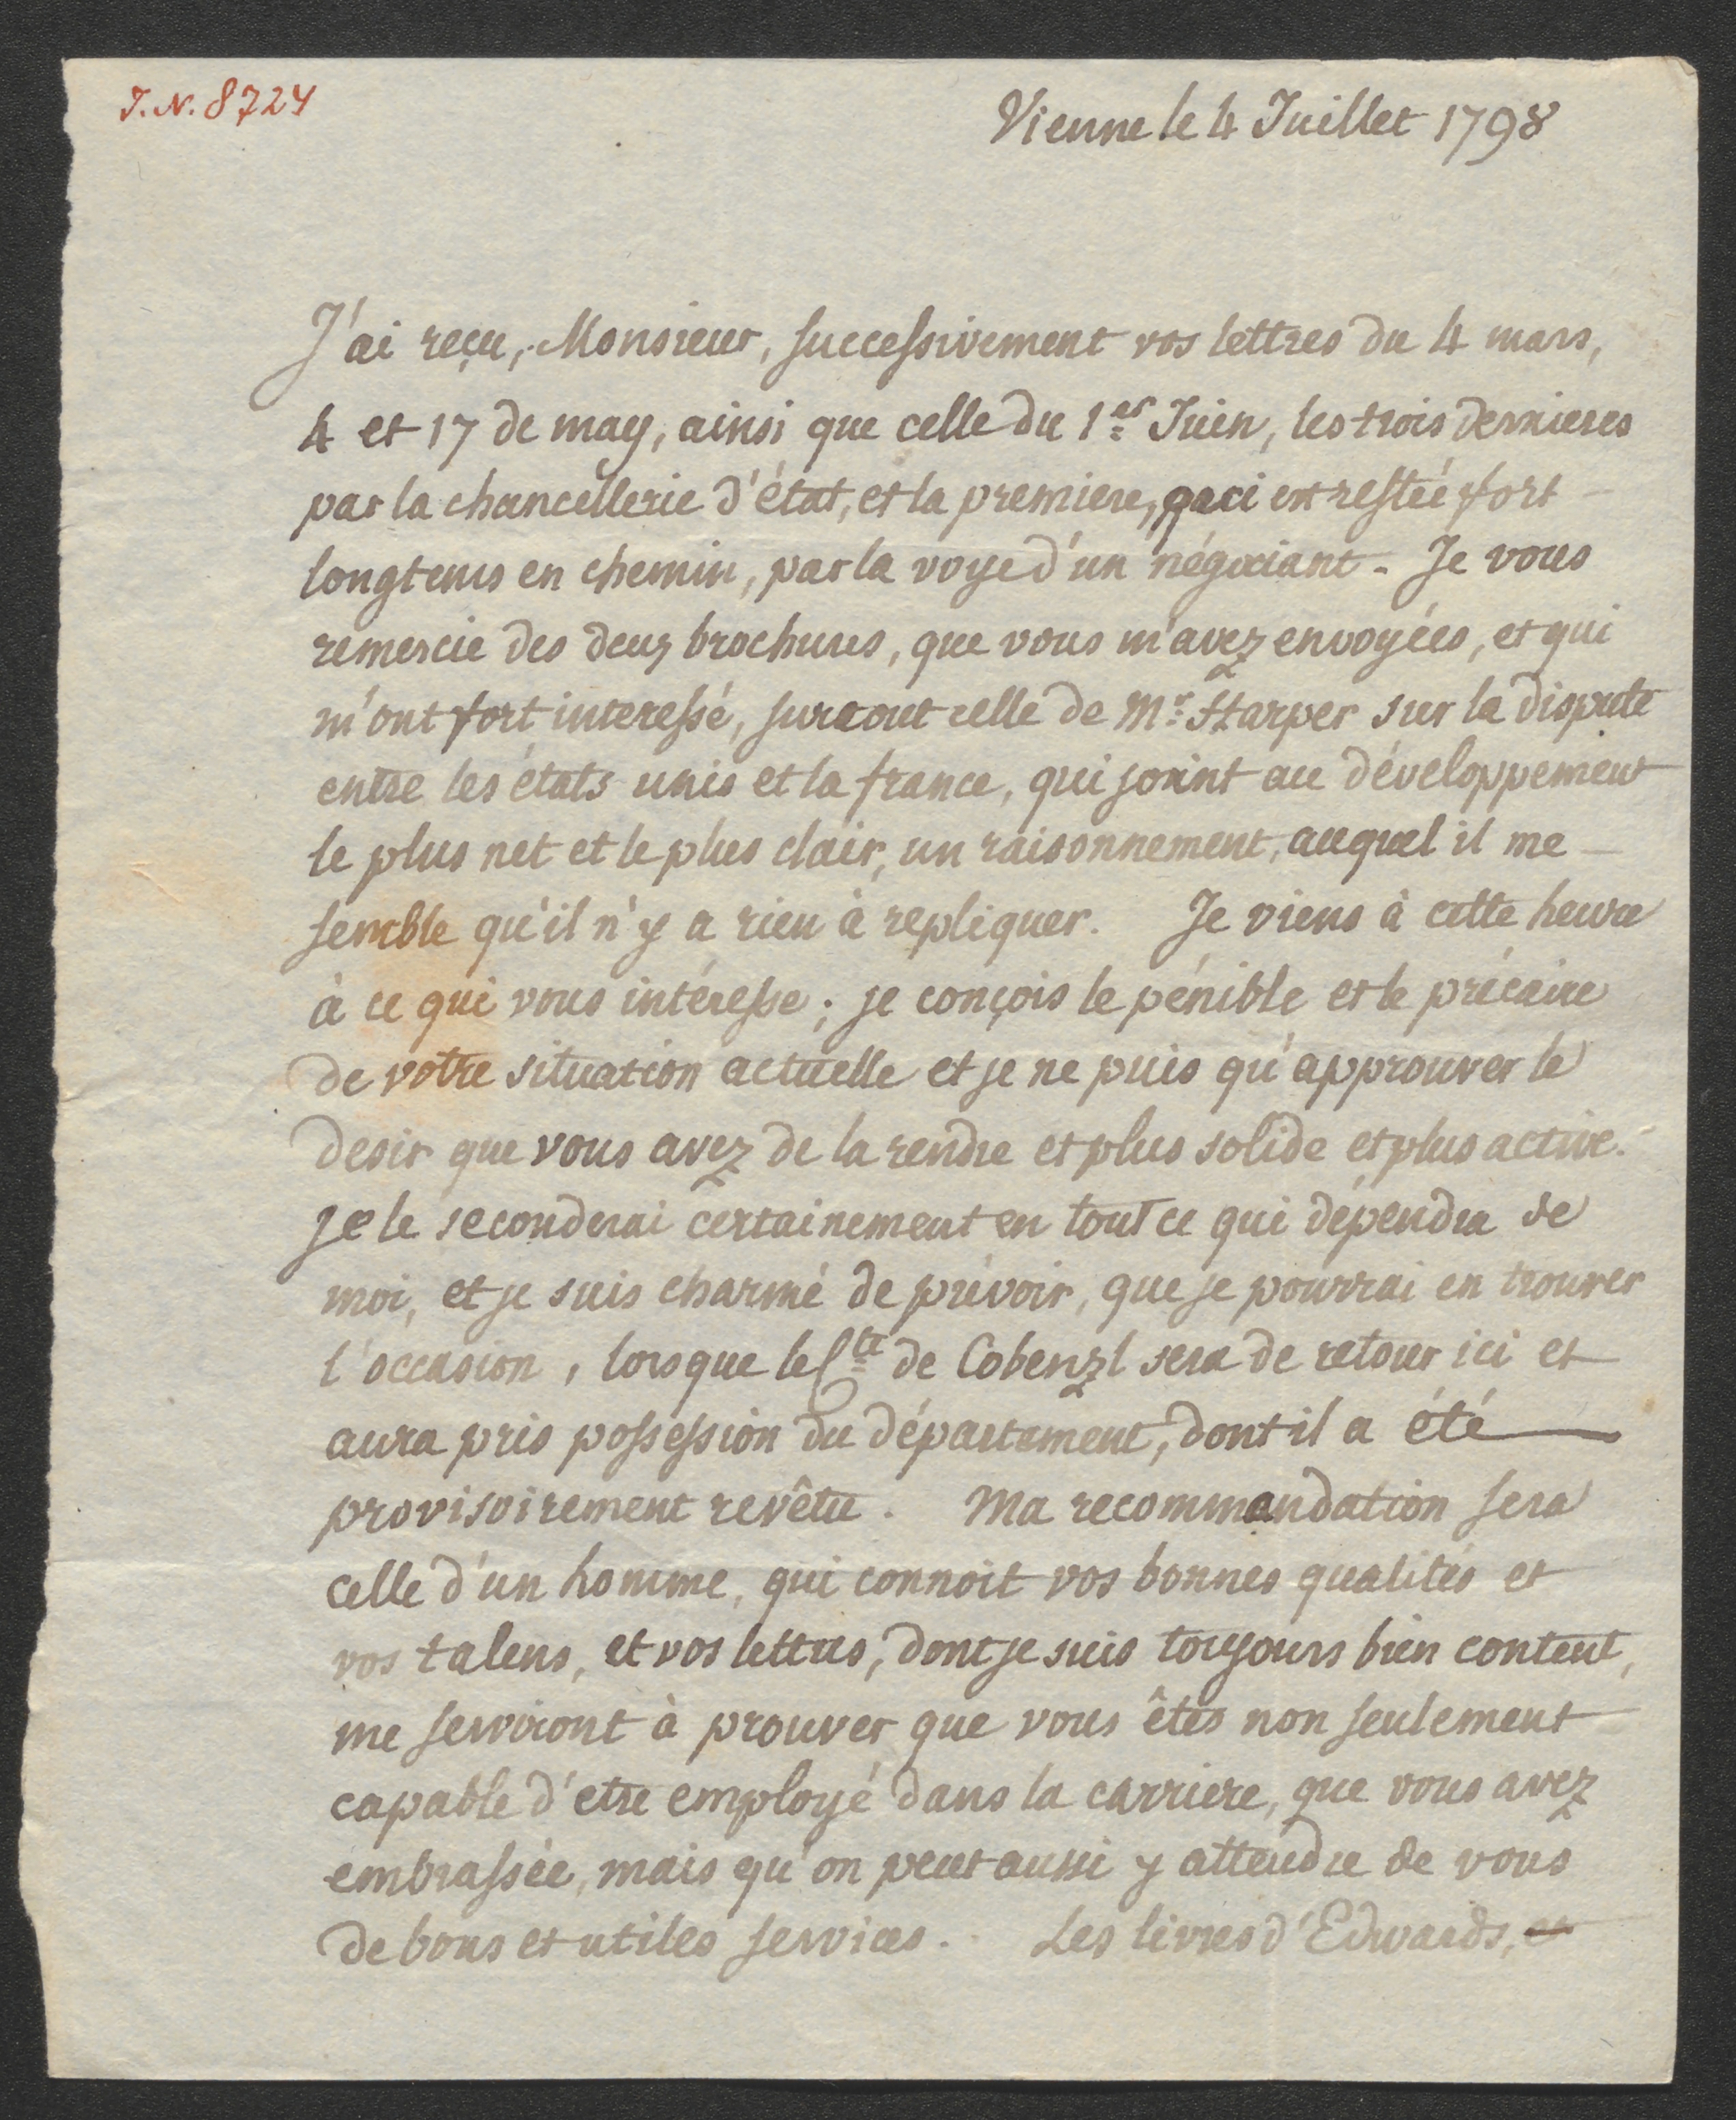 J.N. 8724
Vienne le 4 Juillet 1798
J'ai reçu, Monsieur, successivement vos lettres du 4 mars,
4 et 17 de may, ainsi que celle du 1er Juin, les trois dernieres
par la chancellerie d'état, et la premiere, qui est restée fort
longtems en chemin, par la voye d'un négociant. Je vous
remercie des deux brochures, que vous m'avez envoyées, et qui
m'ont fort interessé, surtout celle de Mr. Harper sur la dispute
entre les états unis et la france, qui joint au développement
le plus net et le plus clair, un raisonnement, auquel il me
semble qu'il n'y a rien à repliquer. Je viens à cette heure
à ce qui vous intéresse; je conçois le pénible et le précaire
de votre situation actuelle et je ne puis qu'approuver le
desir que vous avez de la rendre et plus solide et plus active.
je le seconderai certainement en tout ce qui dépendra de
moi, et je suis charmé de prévoir, que je pourrai en trouver
l'occasion, lorsque le Cte de Cobenzl sera de retour ici et
aura pris possession du département, dont il a été
provisoirement revêtu. Ma recommandation sera
celle d'un homme, qui connoit vos bonnes qualités et
vos talens, et vos lettres, dont je suis toujours bien content,
me serviront à prouver que vous êtes non seulement
capable d'etre employé dans la carriere, que vous avez
embrassée, mais qu'on peut aussi y attendre de vous
de bons et utiles services. Les livres d'Edwards, et